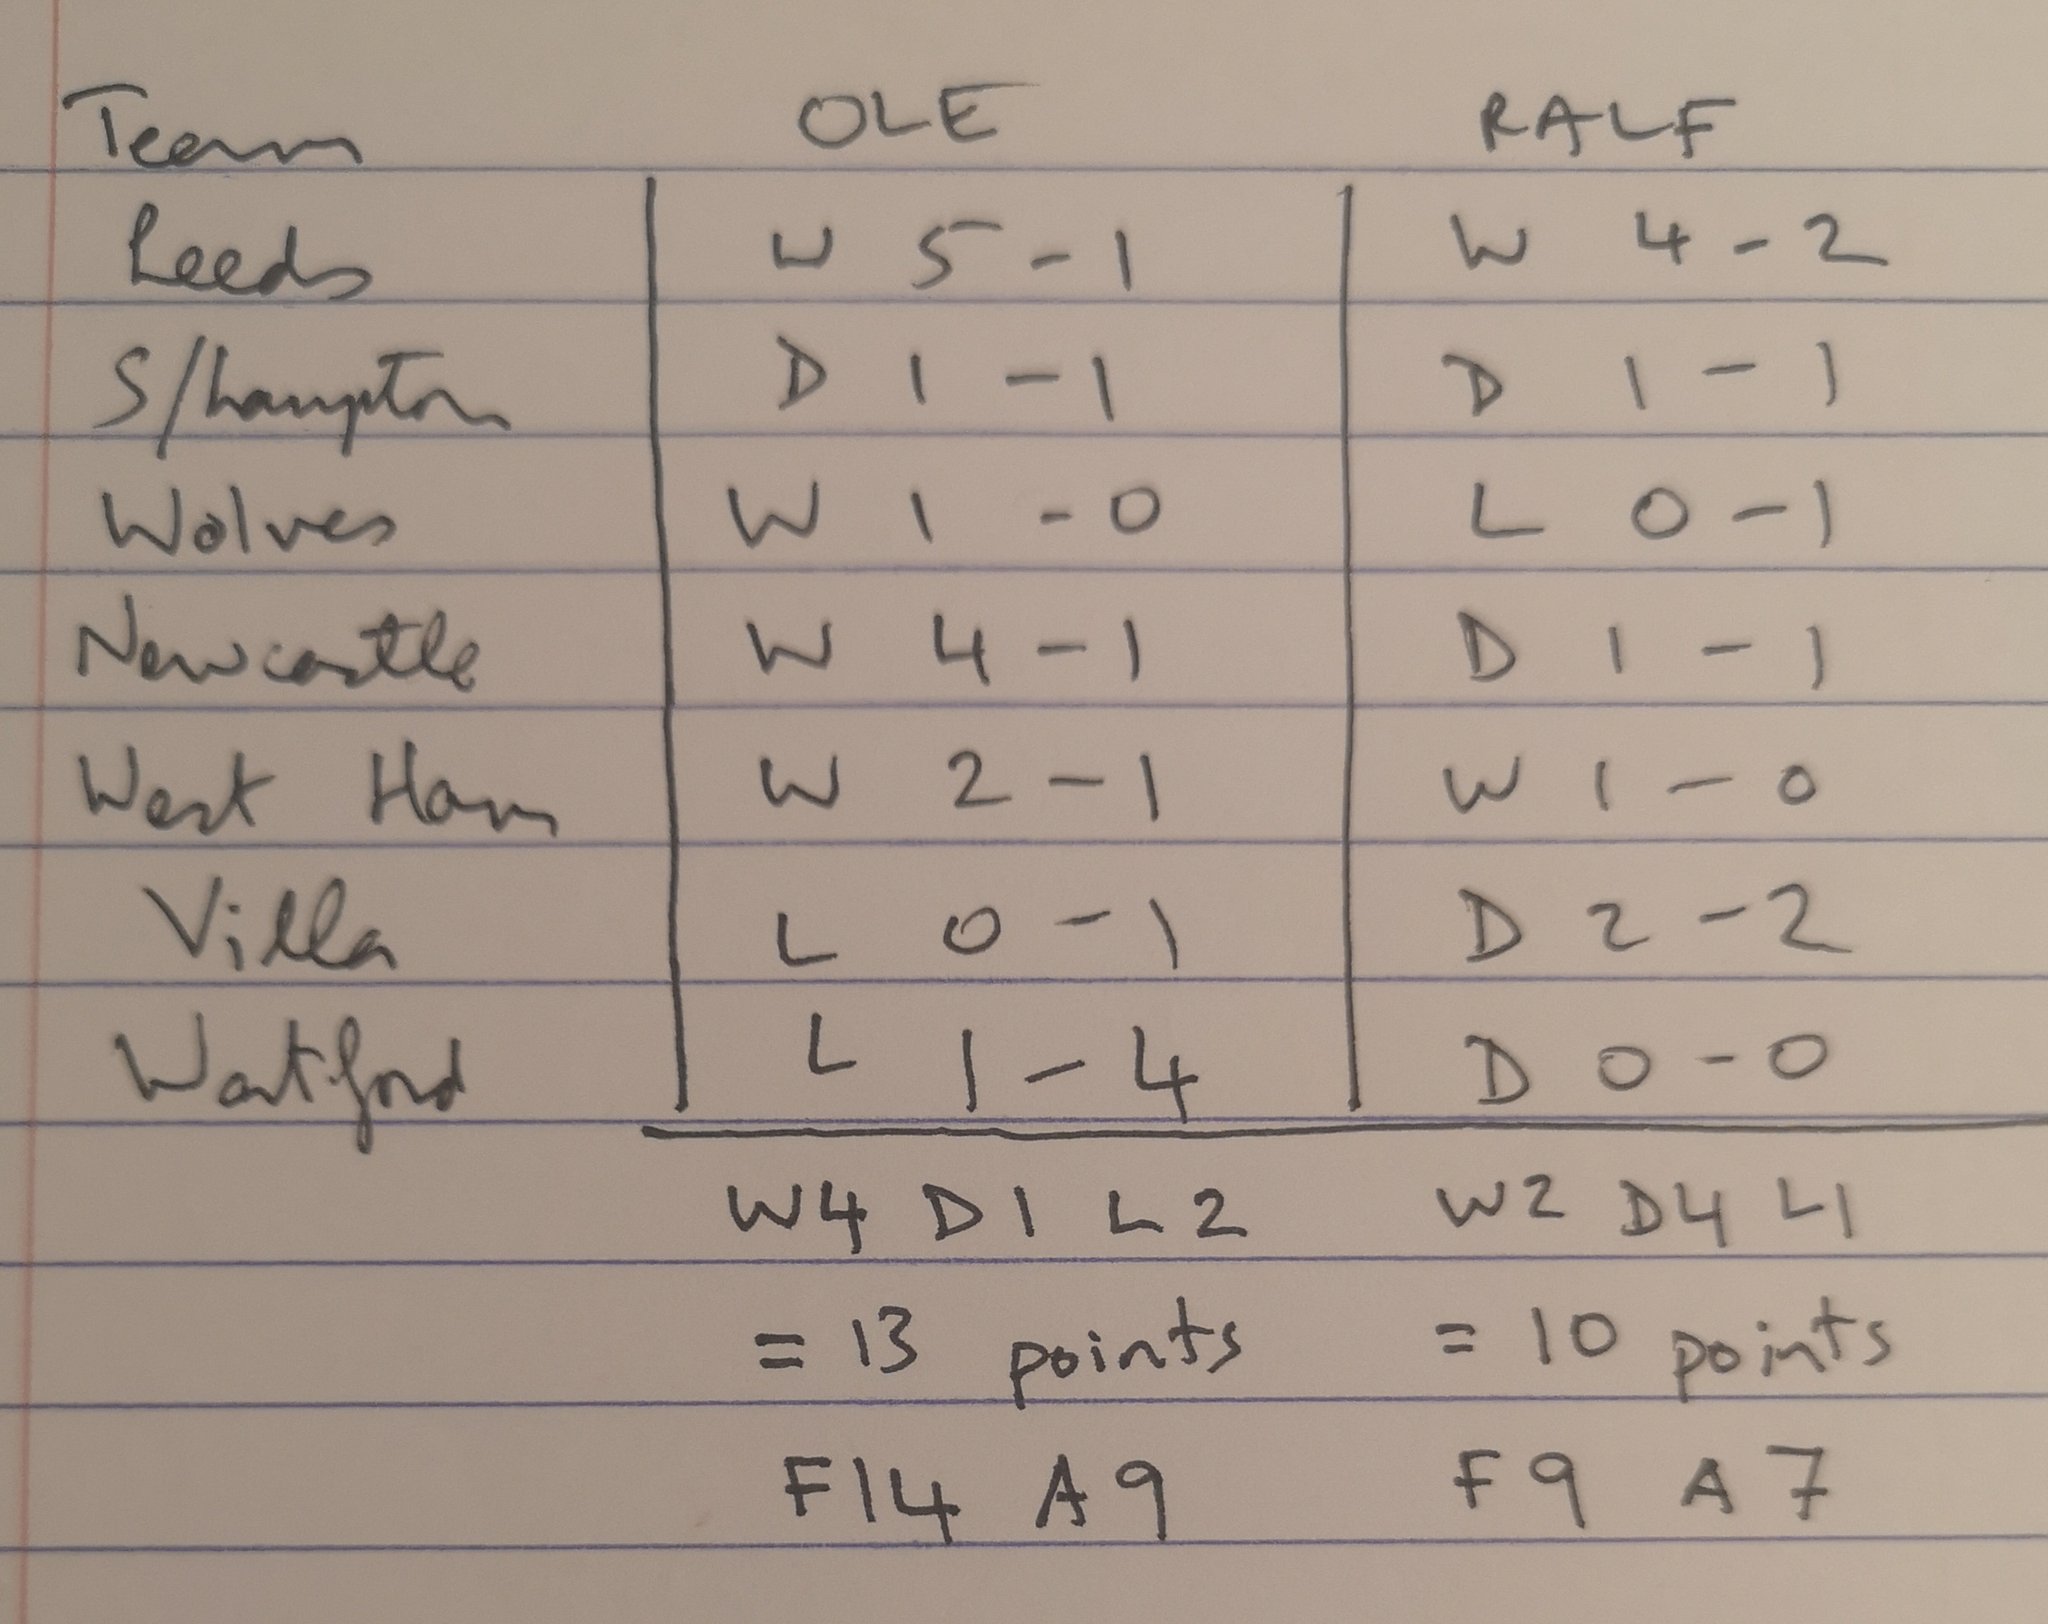 Team OLE RALF
Leeds W 5-1 W 4-2
S/hampton D 1-1 D 1-1
Wolves W 1-0 L 0-1
Newcastle W 4-1 D 1-1
West Ham W 2-1 W 1-0
Villa L 0-1 D 2-2
Watford L 1-4 D 0-0
W4 D1 L2 W2 D4 L1
= 13 points = 10 points
F14 A9 F9 A7